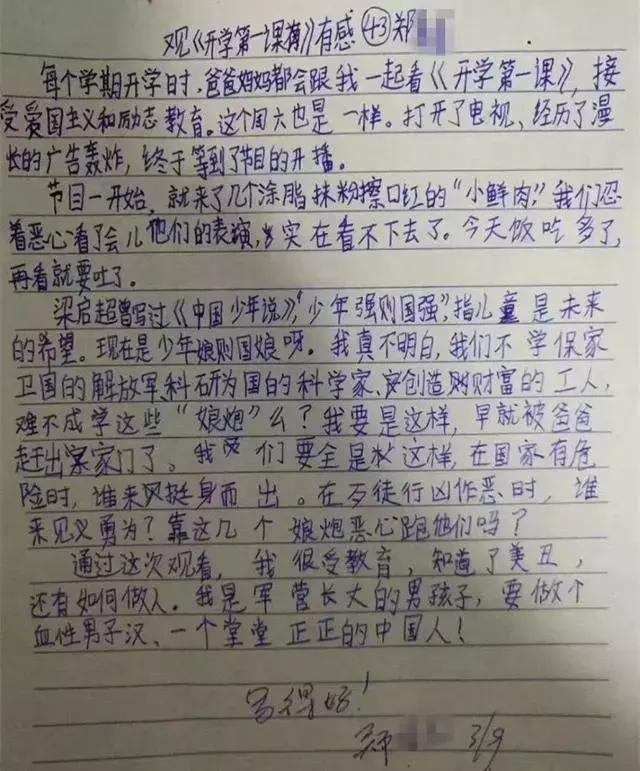 观《开学第一课》有感 43 郑
每个学期开学日时,爸爸妈妈都会跟我一起看《开学第一课》,接
受爱国主义和励志教育。这个周六也是一样。打开了电视、经历了漫
长的广告轰炸,终于等到了节目的开播。
节目一开始,就来了几个涂脂抹粉擦口红的“小鲜肉”,我们忍
着恶心看了会儿他们的表演,实在看不下去了。今天饭吃多了,
再看就要吐了。
梁启超曾写过《中国少年说》,“少年强则国强”,指儿童是未来
的希望。现在是少年娘则国娘呀。我真不明白,我们不学保家
卫国的解放军、科研为国的科学家、创造财富的工人,
难不成学这些“娘炮”么?我要是这样,早就被爸爸
赶出家门了。我们要全是这样,在国家有危
险时,谁来挺身而出。在歹徒行凶作恶时,谁
来见义勇为?靠这几个娘炮恶心跑他们吗?
通过这次观看,我很受教育,知道了美丑,
还有如何做人。我是军营长大的男孩子,要做个
血性男子汉、一个堂堂正正的中国人!
写得好!
3/9